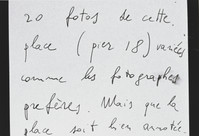 20 fotos de cette
place (pier 18) variées
comme les fotographes
prefères. Mais que la
place soit bien annotée